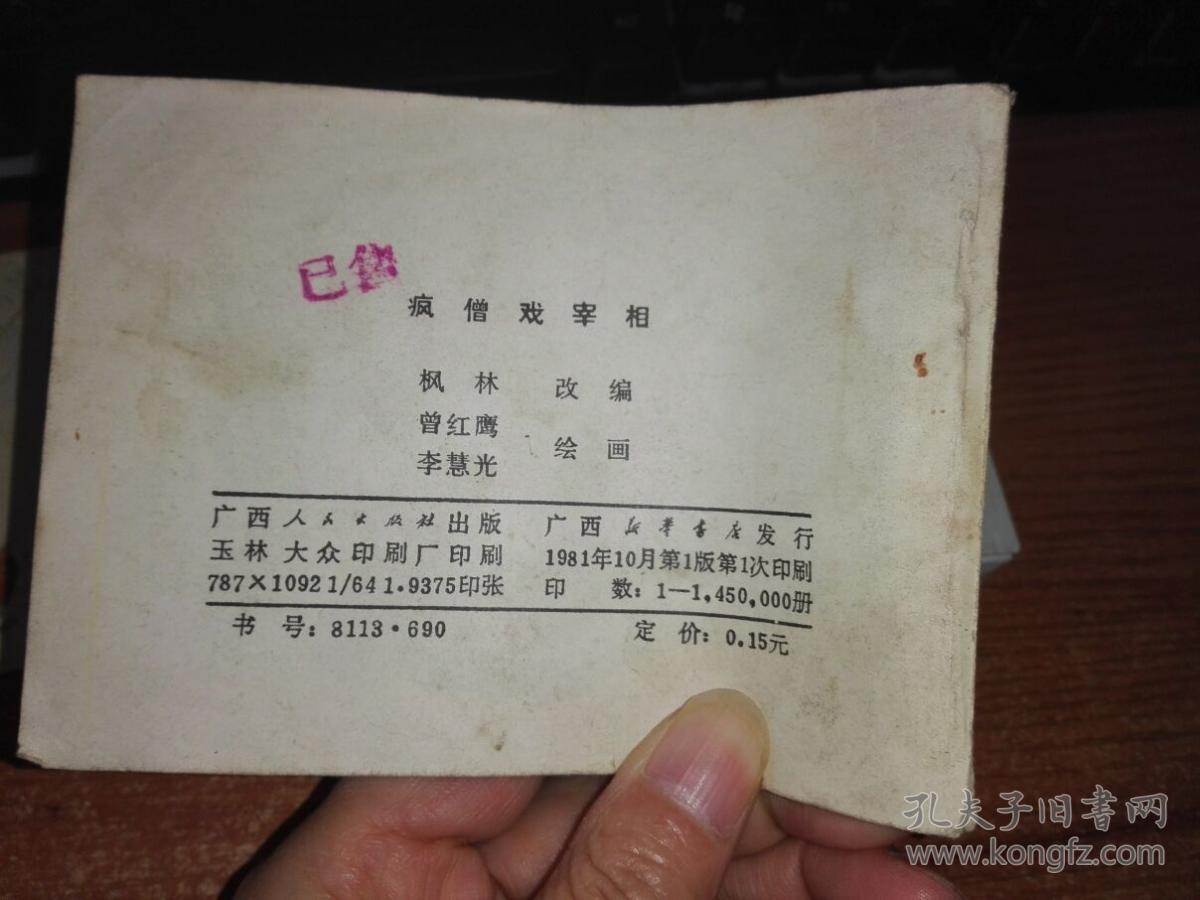 已售
疯僧戏宰相
枫林 改编
曾红鹰
李慧光 绘画
广西人民出版社出版 广西新华书店发行
玉林大众印刷厂印刷 1981年10月第1版第1次印刷
787×1092 1/64 1.9375印张 印 数：1—1,450,000册
书 号：8113·690 定 价：0.15元
孔夫子旧书网
www.kongfz.com